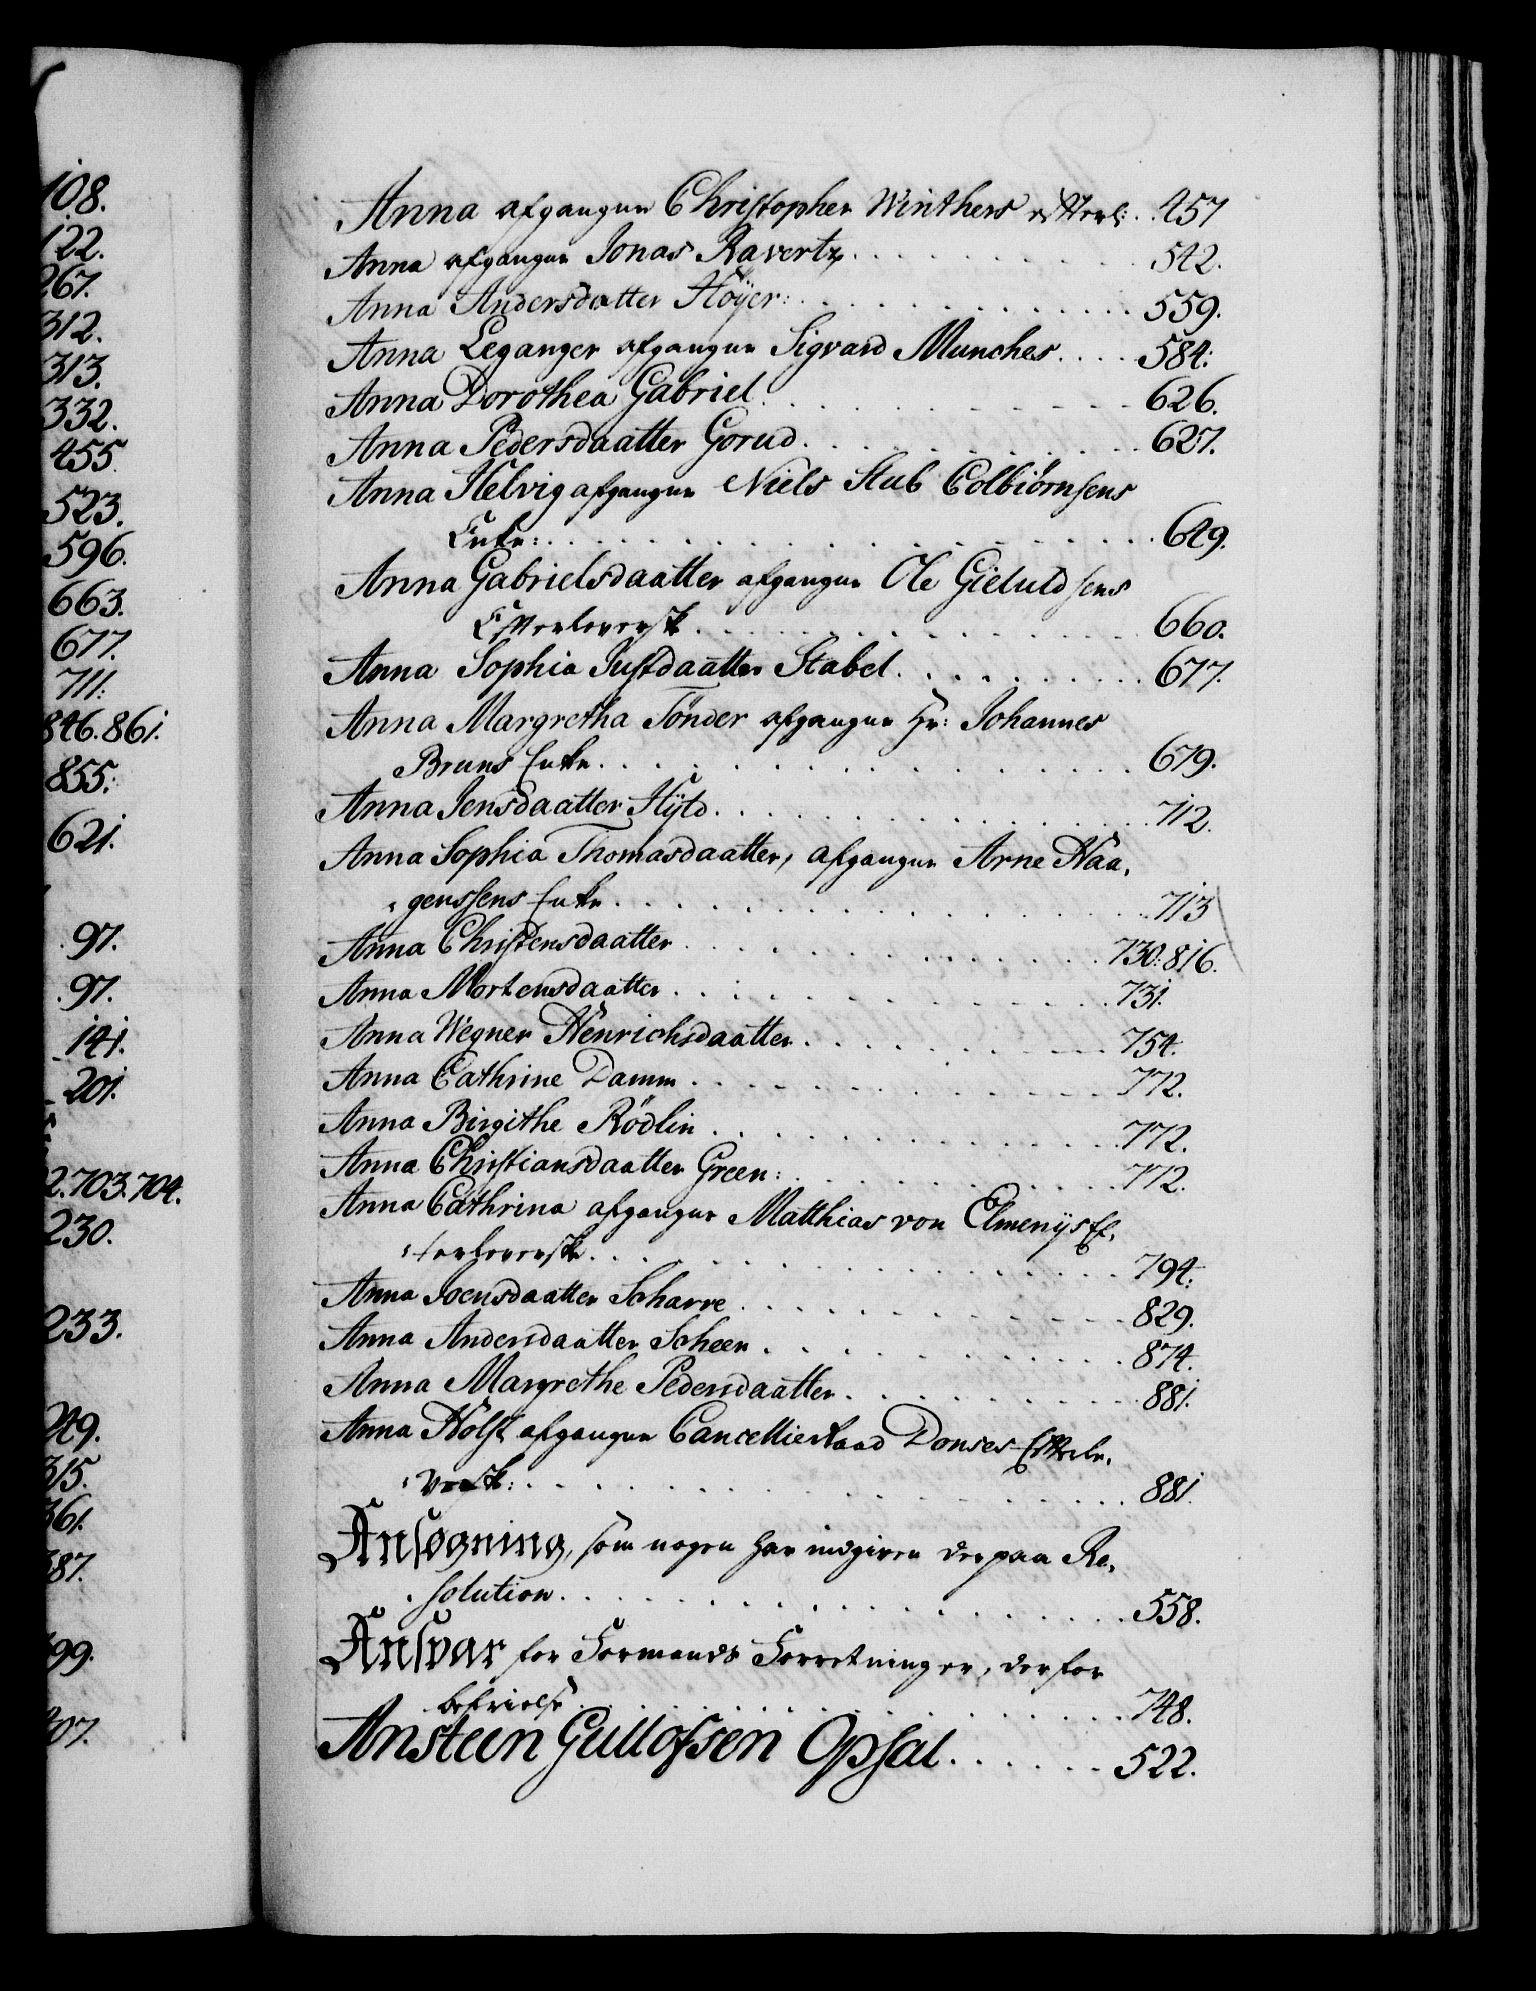 108.
122.
267.
312.
313.
332.
455.
523.
596.
663.
677.
711:
846. 861.
855:
621.
97.
97.
141.
201.
2. 703. 704.
230.
233.
249.
315.
361.
387.
399.
407.
Anna afgangne Christopher Winthers efterl: . . 457
Anna afgangne Jonas Ravertz . . . . . . . 542.
Anna Andersdatter Höÿer: . . . . . . . 559.
Anna Leganger afgangne Sigvard Munches . . . . 584:
Anna Dorothea Gabriel . . . . . . . 626.
Anna Pedersdaatter Gorud . . . . . . . 627.
Anna Helvig afgangne Niels Stub Colbiörnsens
Enke: . . . . . . . 649.
Anna Gabrielsdaatter afgangne Ole Gielutdsens
Efterleverske . . . . . . . 660.
Anna Sophia Justdaatter Stabel . . . . . . . 677.
Anna Margretha Tönder afgangne Hr: Johannes
Bruns Enke . . . . . . . 679.
Anna Jensdaatter Hÿld . . . . . . . 712.
Anna Sophia Thomasdaatter, afgangne Arne Haa,
,genssens Enke . . . . . . . 713
Anna Christensdaatter . . . . . . . 730: 816.
Anna Mortensdaatter . . . . . . . 731.
Anna Wegner Henrichsdaatter . . . . . . . 754.
Anna Cathrine Damm . . . . . . . 772.
Anna Birgithe Rödlin . . . . . . . 772.
Anna Christiansdaatter Green: . . . . . . . 772.
Anna Cathrina afgangne Matthias von Elmenÿs Ef,
,terleverske . . . . . . . 794:
Anna Joensdaatter Scharre . . . . . . . 829.
Anna Andersdaatter Scheen . . . . . . . 874.
Anna Margrethe Pedersdaatter . . . . . . . 881.
Anna Holst afgangne Cancellieraad Donses Efterle,
,verske: . . . . . . . 881.
Ansøgning, som nogen har indgiven derpaa Re,
,solution . . . . . . . 558.
Ansvar for Formands Forretninger, derfor
befrielse . . . . . . . 748.
Ansteen Gullofsen Opsal . . . . . . 522.